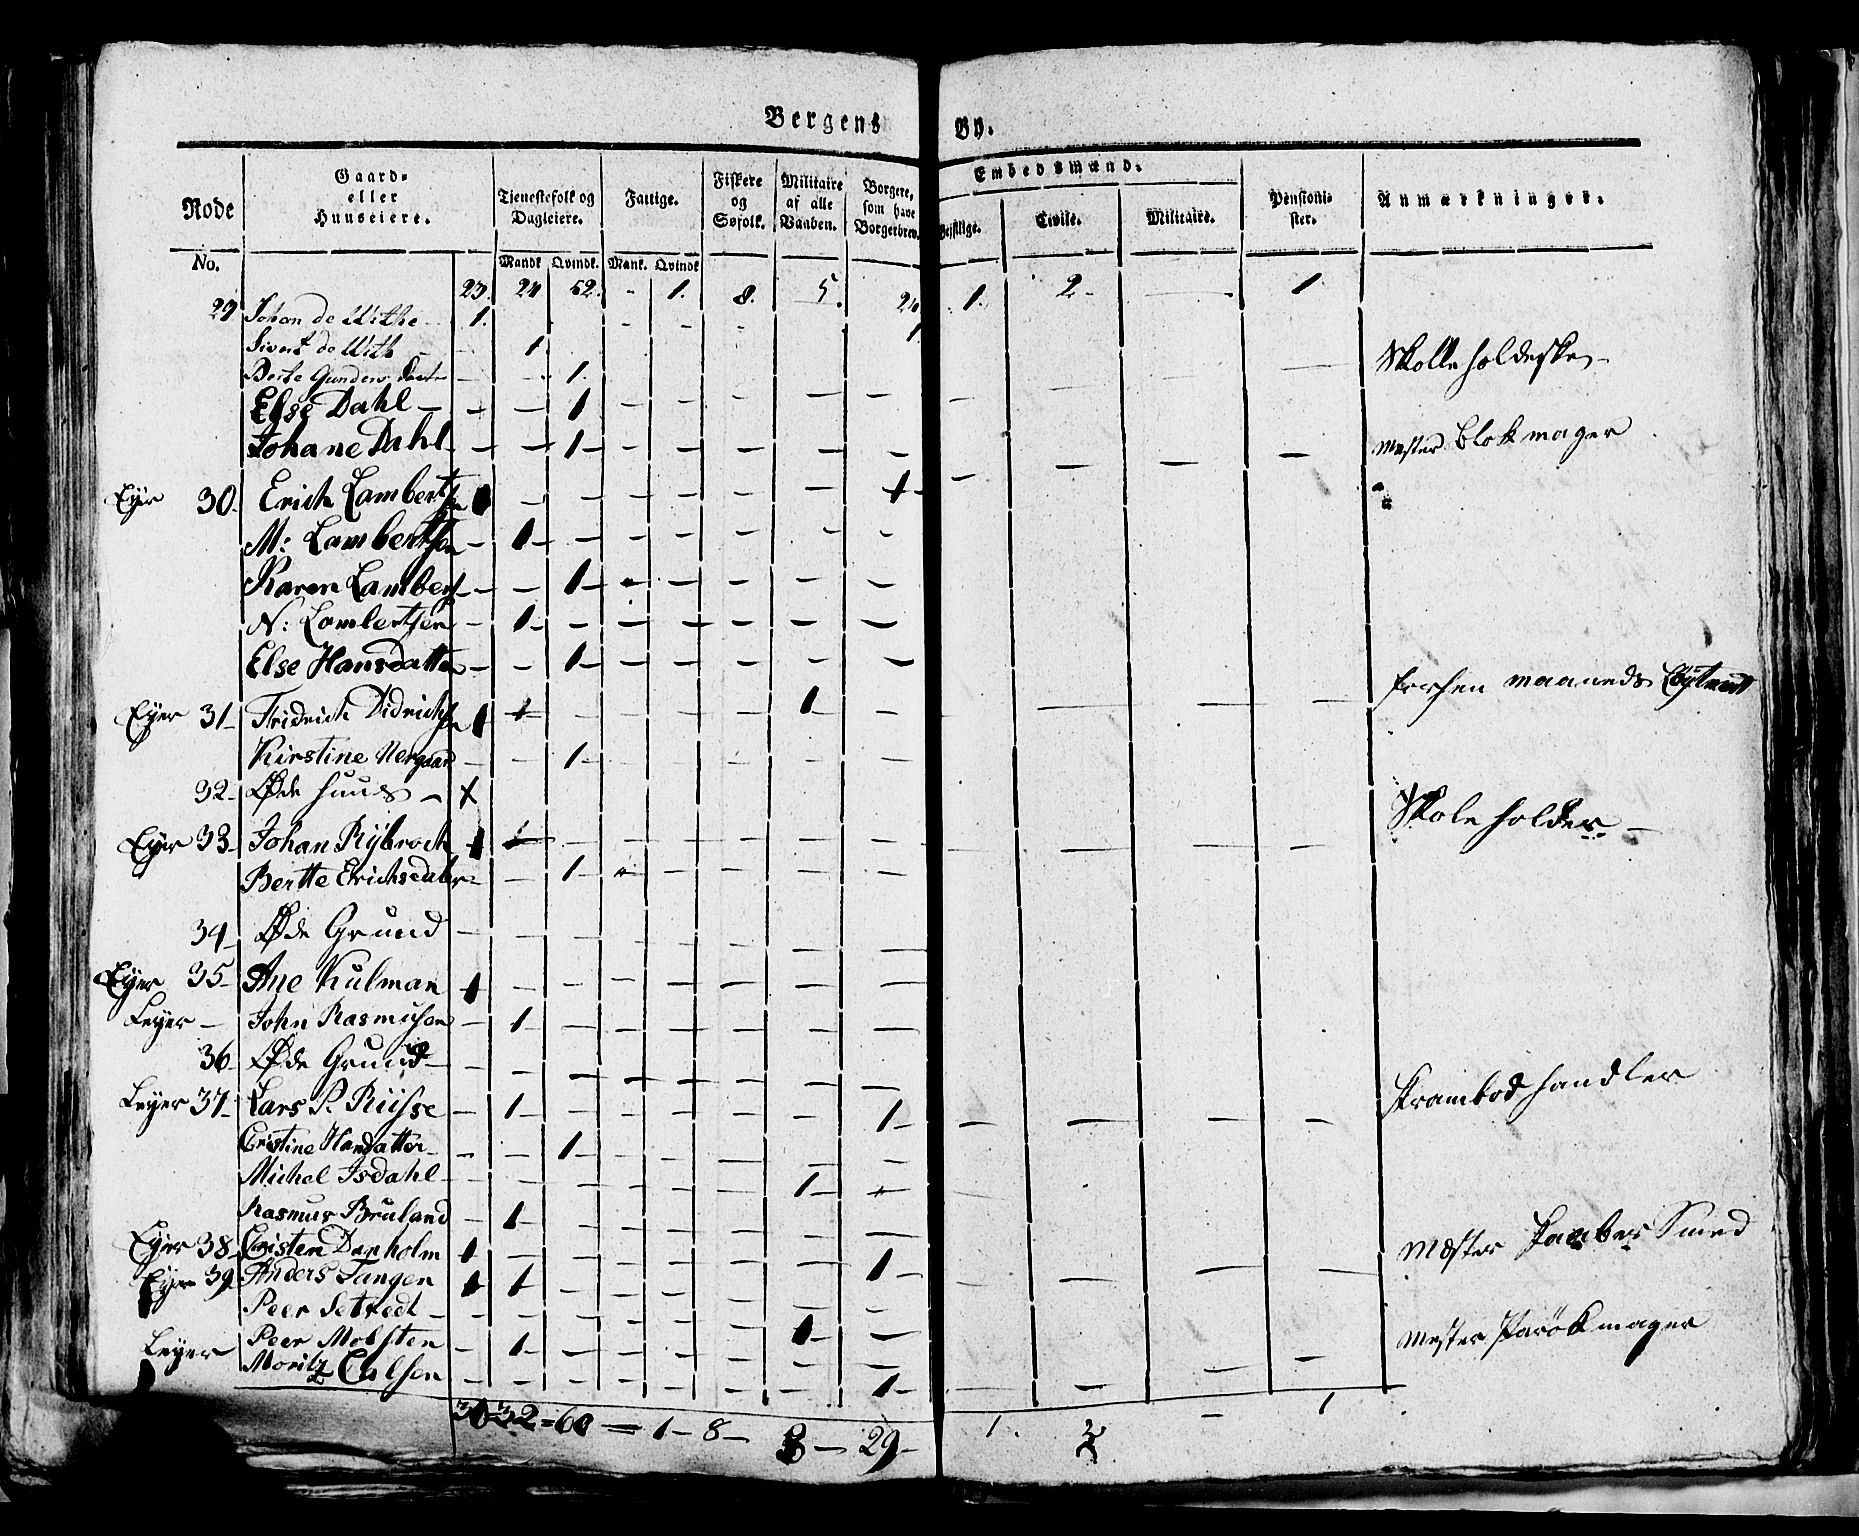 Bergens By.
Rode No. | Gaard- eller Huuseiere. | Tjenestefolk og Dagleiere. Mandk Qvindk. | Fattige. Mank. Qvindk | Fiskere og Søfolk. | Militaire af alle Vaaben. | Borgere, som have Borgerbrev. | Embedsmænd. Geistlige. Civile. Militaire. | Pensionister. | Anmærkninger.
23. 24 52. - 1. 8. 5. 24 1. 2- — 1.
29 Johan de Withe 1. - - - 1
Sivert de With - 1
Berte Gunders Datter - - 1. — Skolleholdeske -
Else Dahl - - - 1 - - - - -
Johane Dahl - - - 1 - - - - - Mester Blokmager
Eyer 30. Erich Lambertsen 1 - - - - - - 1 -
M: Lambertsen - 1 - - - - - -
Karen Lamberts - - 1 - - - - - -
N: Lambertsen - 1 - - - - - - -
Else Hansdatter - - 1 - - - - - -
Eyer 31 Fridrich Didrichsen 1 1 - - - - 1 - - maaneds
Kirstine Nergaard - - 1 - - - - - -
32 Øde Huus - x
Eyer 33 Johan Rybroch 1 1 - - - - - - Skoleholder -
Bertte Erichsdater - - 1 - - - - - -
34 Øde Grund - - - - - - - -
Eyer 35 Ane Kulman 1 - - - - - - -
Leyer - John Rasmusen - 1 - - - - - -
36 Øde Grund - - - - - - - -
Leyer 37 Lars P. Riisse - 1 - - - - - 1 - Krambodhandler
Cristine Hansdatter - - - 1 - - - - -
Michel Isdahl - - - - - - - 1 - -
Rasmus Bruland - 1 - - - - - -
Eyer 38 Cristen Danholm 1 - - - - - - 1 - Mester Kaaber Smed
Eyer 39 Anders Tangen 1 1 - - - - - -
Peer - - - - - - - 1 -
Leyer Peer Molsten - 1 - - - - - - Mester Parøkmager
Moritz Calsen - - - - - - - 1 -
30 32 = 60 — 1 - 8 - 8 - 29 - 1. 2 - 1